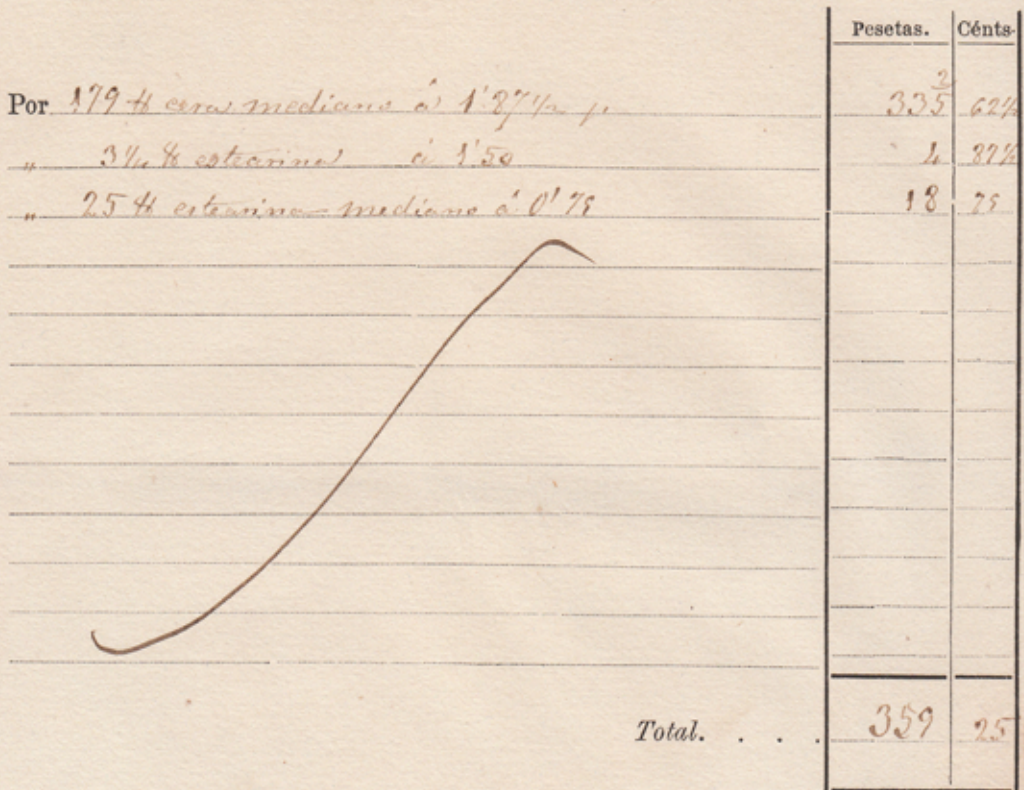 Pesetas. Cénts.
2
Por 179 ℔ cera mediano á 1'87½ p. 335 62½
„ 3¼ ℔ estearina á 1'50 4 87½
„ 25 ℔ estearina mediano á 0'75 18 75
Total. . . . 359 25